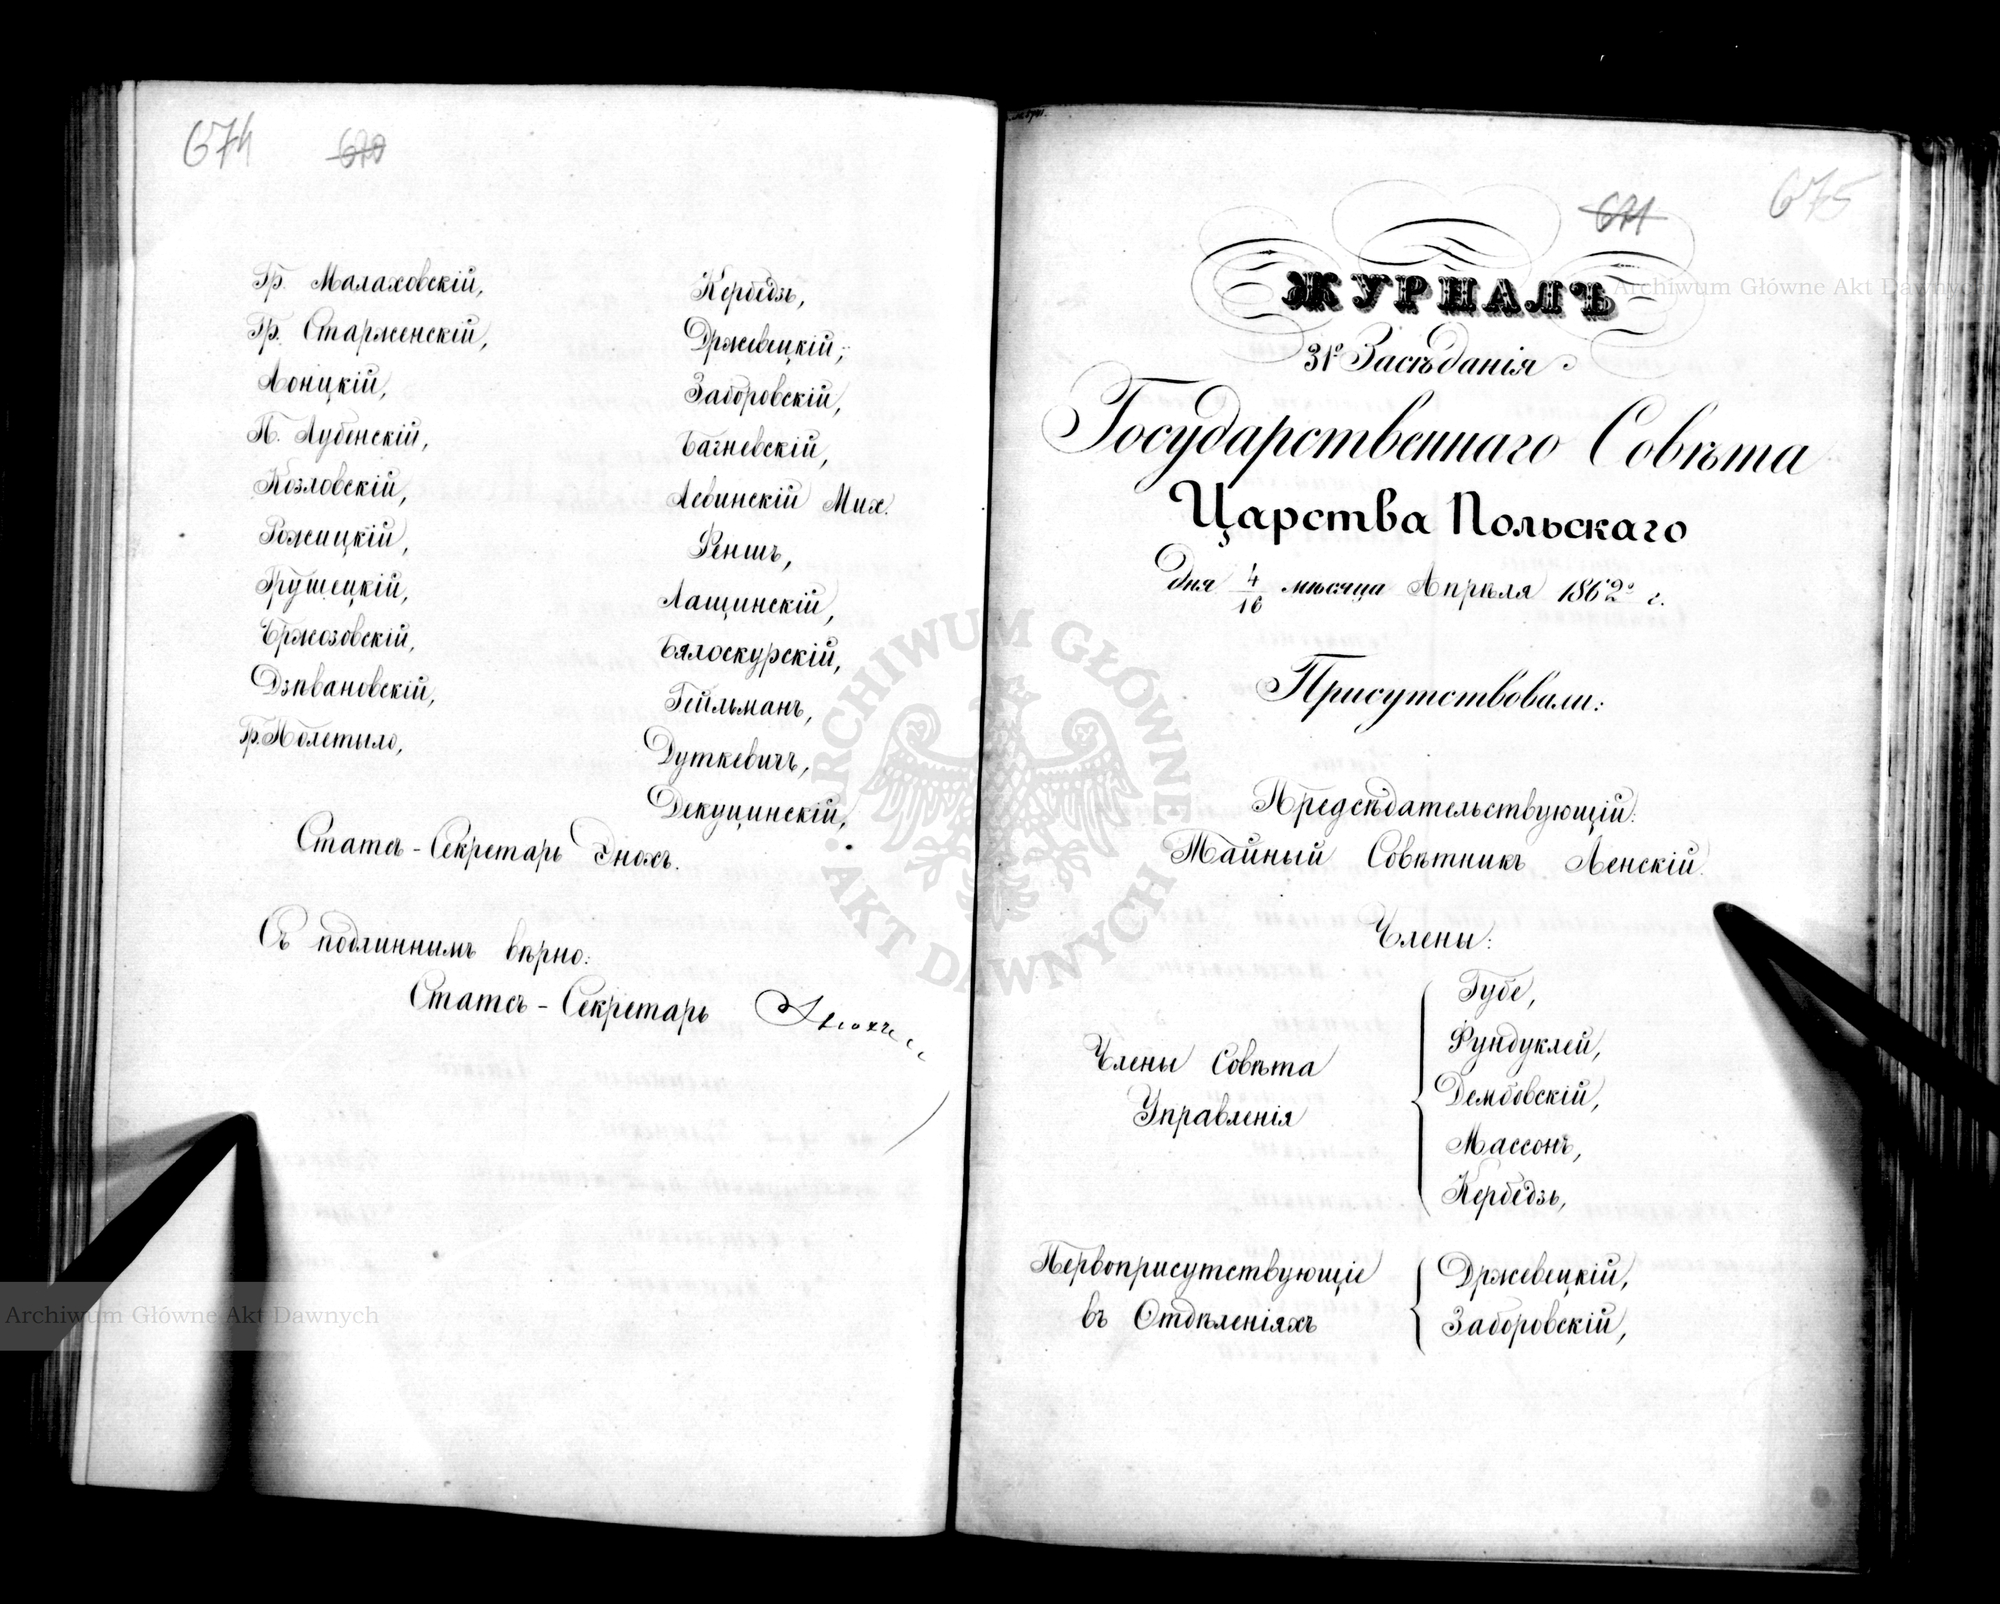 674 670
Гр. Малаховскій,
Гр. Старженскій,
Лонцкій,
П. Лубенскій,
Козловскій,
Рожицкій,
Грушецкій,
Бржозовскій,
Дзпвановскій,
Гр. Полетыло,
Кербедзь,
Држевецкій,
Заборовскій,
Багневскій,
Левинскій Мих.
Феншъ,
Лащинскій,
Бялоскурскій,
Гейльманъ,
Дуткевичъ,
Декуцинскій,
Статсъ-Секретарь Энохъ.
Съ подлиннымъ вѣрно:
Статсъ-Секретарь Энохъ
671 675
ЖУРНАЛЪ
31º Засѣданія
Государственнаго Совѣта
Царства Польскаго
Дня 4/16 мѣсяца Апрѣля 1862º г.
Присутствовали:
Предсѣдательствующій:
Тайный Совѣтникъ Ленскій.
Члены:
Члены Совѣта
Управленія
Губе,
Фундуклей,
Дембовскій,
Массонъ,
Кербедзь,
Первоприсутствующіе
въ Отдѣленіяхъ
Држевецкій,
Заборовскій,
Archiwum Główne Akt Dawnych
Archiwum Główne Akt Dawnych
ARCHIWUM GŁÓWNE
AKT DAWNYCH